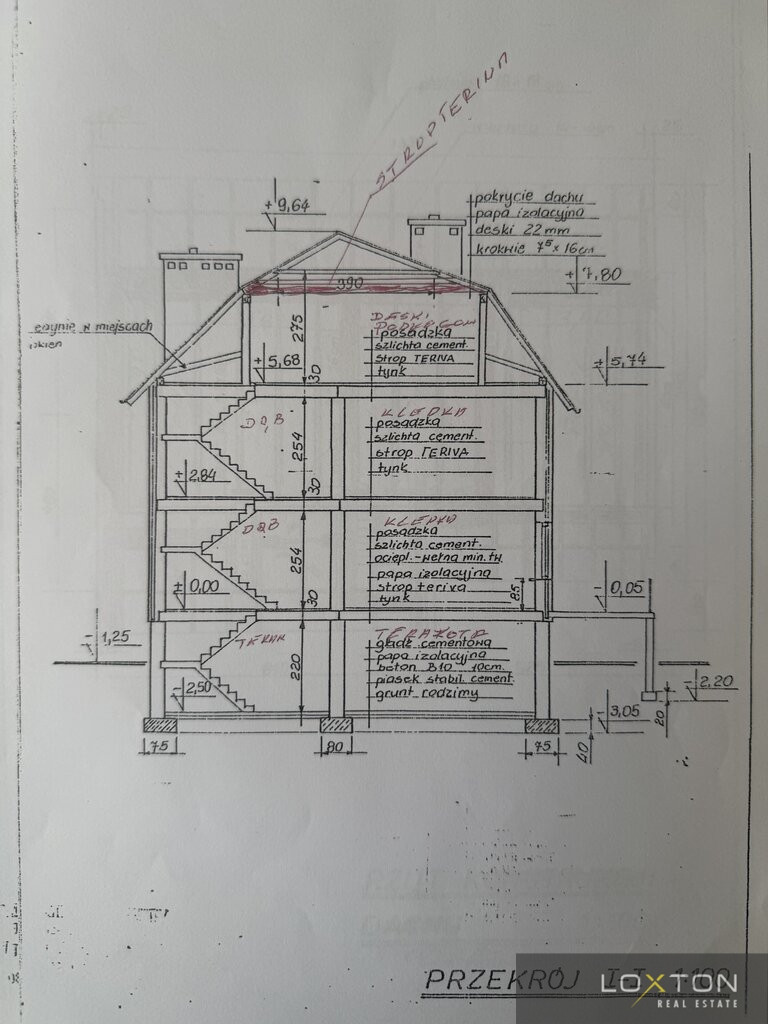 STROP TERINA
+9,64
pokrycie dachu
papa izolacyjna
deski 22 mm
krokwie 7⁵ x 16 cm
+7,80
390
275
DESKI
PODŁOGOW
posadzka
szlichta cement.
strop TERIVA
tynk
w miejscach
okien
+5,68
30
+5,74
DĄB
KLEPKA
posadzka
szlichta cement.
strop TERIVA
tynk
254
+2,84
30
DĄB
KLEPKA
posadzka
szlichta cement.
ociepl.-wełna min.
papa izolacyjna
strop teriva
tynk
254
± 0,00
30
85
-0,05
-1,25
TERAKOTA
gładź cementowa
papa izolacyjna
beton B10 - 10cm.
piasek stabil. cement.
grunt rodzimy
220
-2,50
-2,20
20
-3,05
40
75
80
75
PRZEKRÓJ I-I 1:100
LOXTON
REAL ESTATE